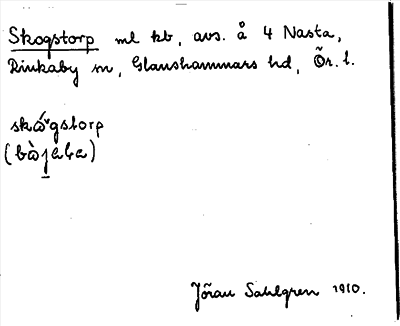 Skogstorp ml kb, avs. å 4 Nasta,
Rinkaby sn, Glanshammars hd, Ör. l.
skǿgstorp
(bàjaba)
Jöran Sahlgren 1910.